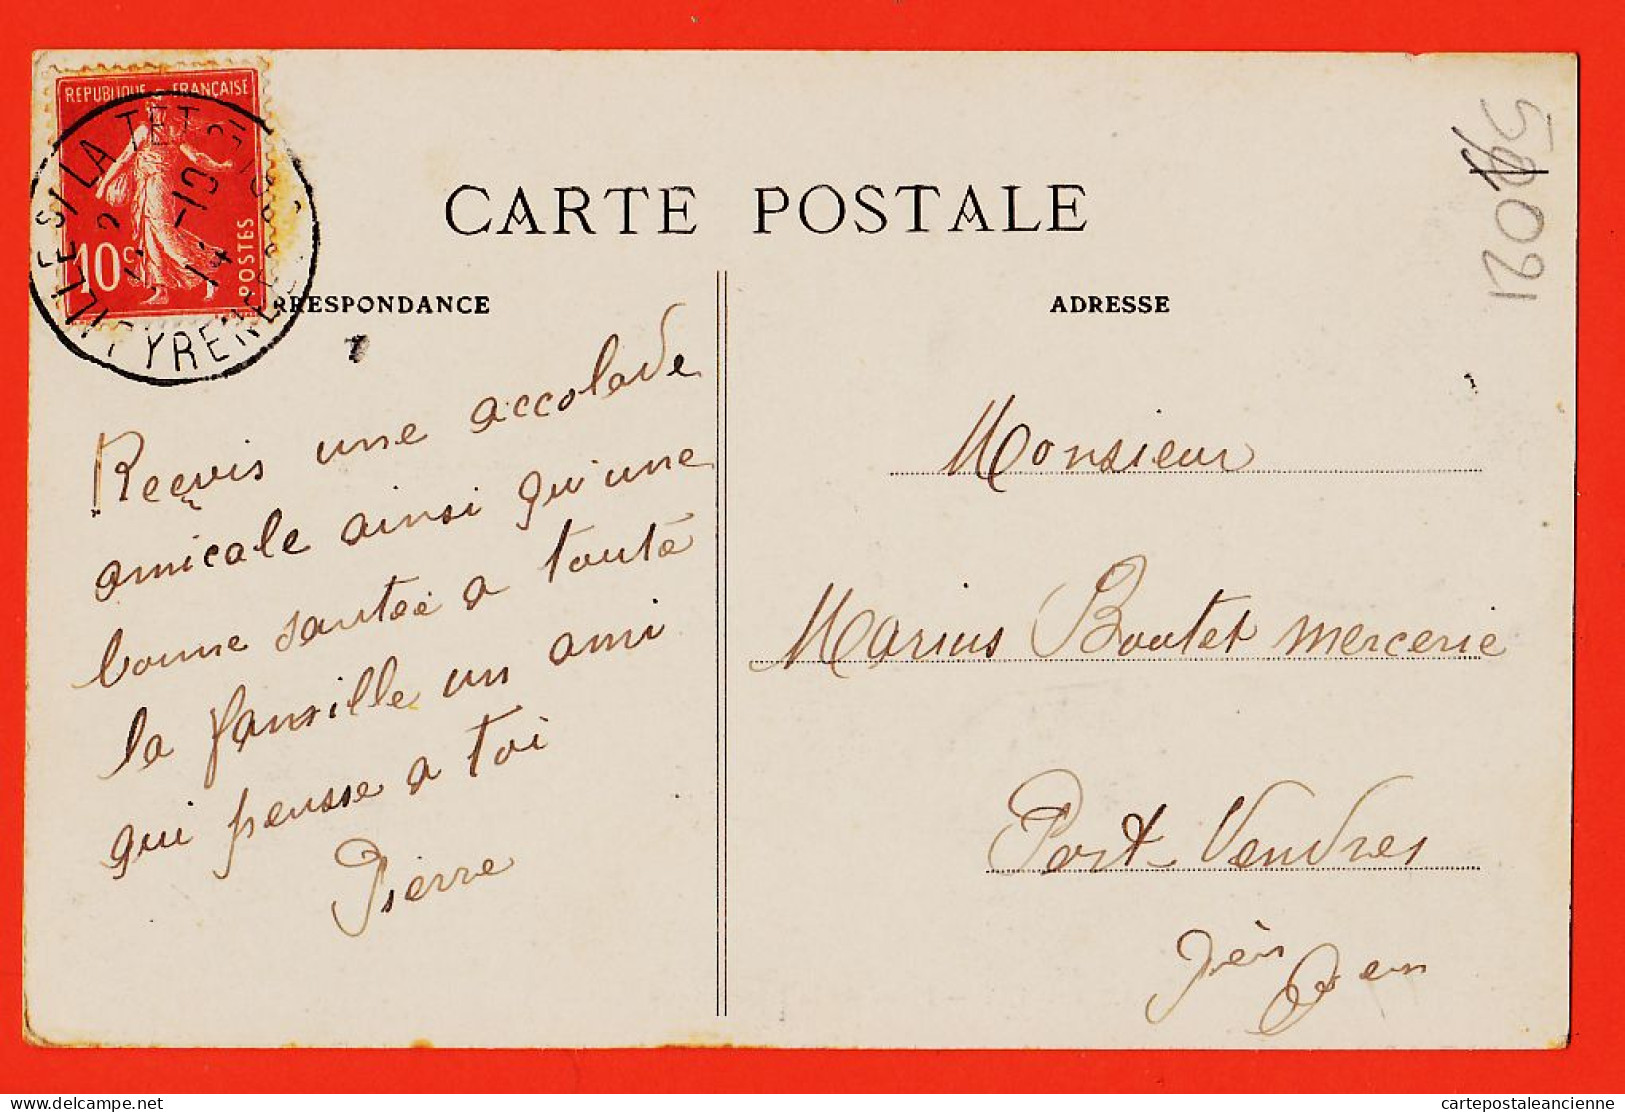 REPUBLIQUE FRANÇAISE
10c
POSTES
ILLE S/ LA TET
PYRENEES
CARTE POSTALE
RRESPONDANCE
ADRESSE
5021
Reçevis une accolade
amicale ainsi qu'une
bonne santée a toute
la famille un ami
qui pensse a toi
Pierre
Monsieur
Marius Boutet mercerie
Port-Vendres
delcampe.net
cartepostaleancienne